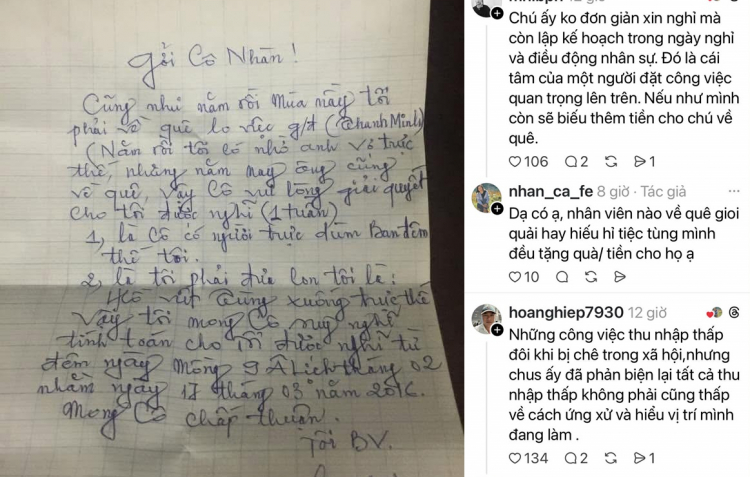 Gởi Cô Nhàn!
Cũng như năm rồi Mùa này tôi
phải về quê lo việc g/đ (Thanh Minh)
(Năm rồi tôi có nhờ anh Võ trực
thế, nhưng năm nay ông cũng
về quê, vậy Cô vui lòng giải quyết
cho tôi được nghỉ (1 tuần)
1, là Cô có người trực dùm Ban đêm
thế tôi.
2, là tôi phải đưa con tôi là:
Hồ Việt Cường xuống trực thế
Vậy tôi mong Cô suy nghĩ
tính toán cho tôi được nghỉ từ
đêm ngày Mồng 9 Âl lịch tháng 02
nhằm ngày 17 tháng 03 năm 2016.
Mong Cô chấp thuận.
Tôi BV.
12 giờ
Chú ấy ko đơn giản xin nghỉ mà
còn lập kế hoạch trong ngày nghỉ
và điều động nhân sự. Đó là cái
tâm của một người đặt công việc
quan trọng lên trên. Nếu như mình
còn sẽ biếu thêm tiền cho chú về
quê.
106 2 1
nhan_ca_fe 8 giờ · Tác giả
Dạ có ạ, nhân viên nào về quê gioi
quải hay hiếu hỉ tiệc tùng mình
đều tặng quà/ tiền cho họ ạ
10
hoanghiep7930 12 giờ
Những công việc thu nhập thấp
đôi khi bị chê trong xã hội,nhưng
chus ấy đã phản biện lại tất cả thu
nhập thấp không phải cũng thấp
về cách ứng xử và hiểu vị trí mình
đang làm .
134 2 1